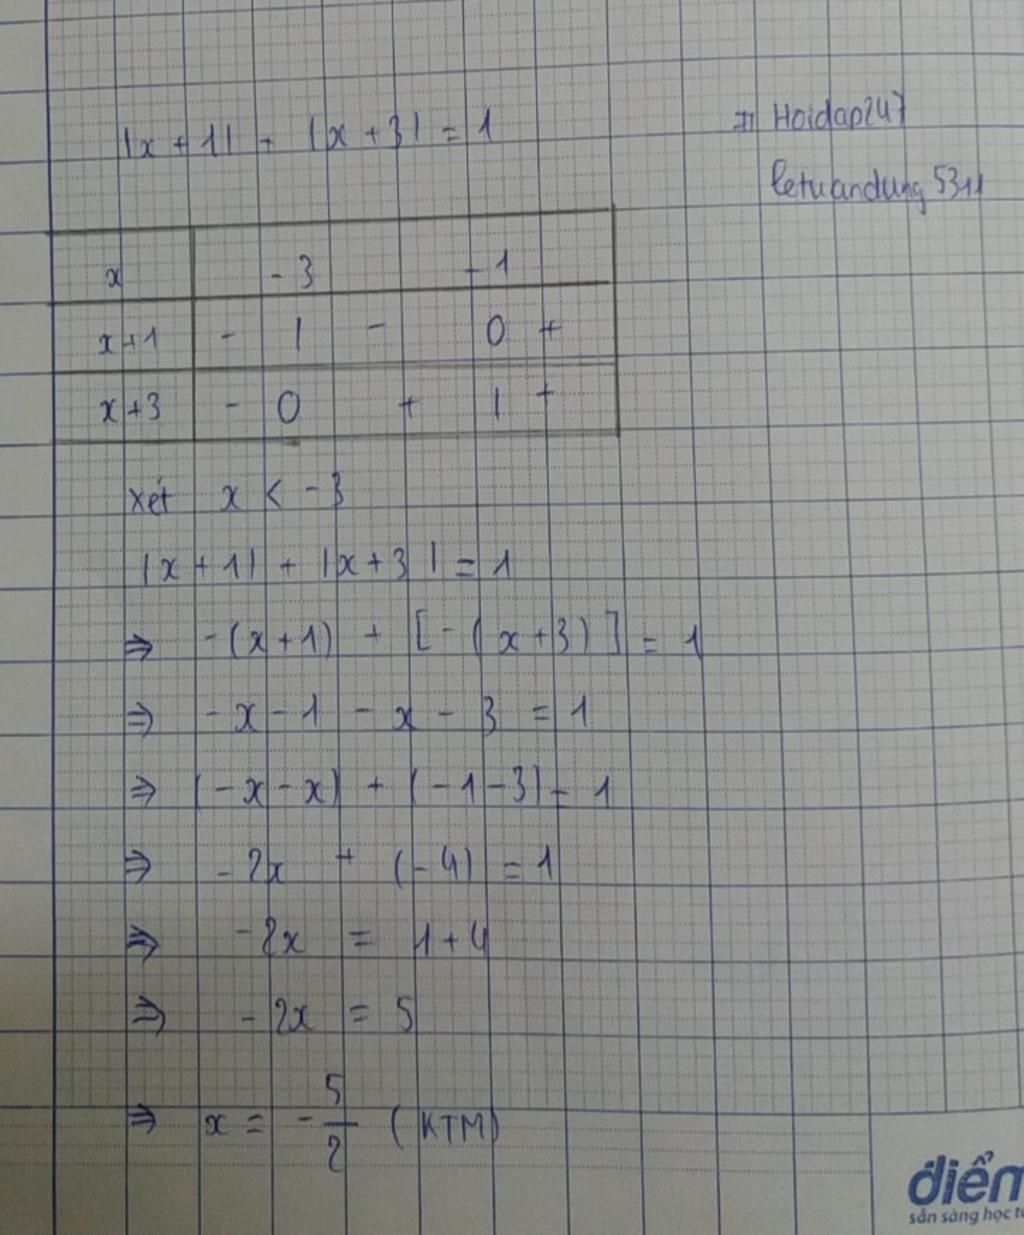 |x + 1| + |x + 3| = 1
Hoidap247
letuandung5311
x - 3 - 1
x+1 - | - 0 +
x+3 - 0 + | +
xét x < -3
|x + 1| + |x + 3| = 1
⇒ -(x + 1) + [-(x + 3)] = 1
⇒ -x - 1 - x - 3 = 1
⇒ (-x - x) + (-1 - 3) = 1
⇒ -2x + (-4) = 1
⇒ -2x = 1 + 4
⇒ -2x = 5
⇒ x = -5/2 (KTM)
điểm
sẵn sàng học